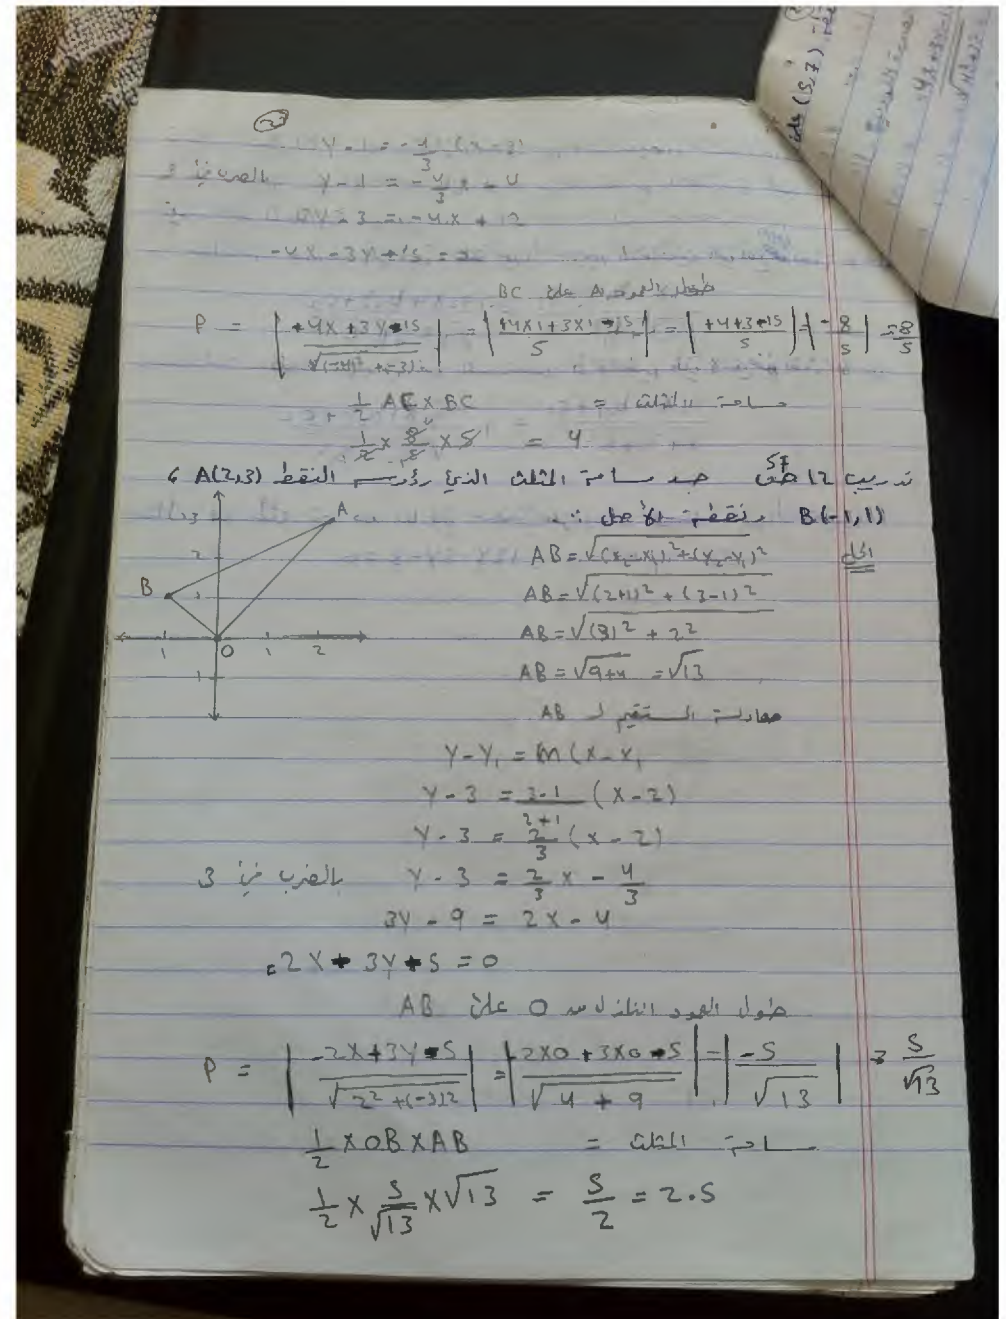 y - 1 = -4/3 (x - 3)
y - 1 = -4/3 x + 4 بالضرب في 3
3y - 3 = -4x + 12
-4x - 3y + 15 = 0
طول العمود A على BC
P = | +4x + 3y - 15 / √(-4)² + (-3)² | = | +4x1 + 3x1 - 15 / 5 | = | +4+3-15 / 5 | = | -8 / 5 | = 8/5
مساحة المثلث = 1/2 AE x BC
1/2 x 8/5 x 5 = 4
تدريب 12 ص 57 جد مساحة المثلث الذي رؤوسه النقط A(2,3) ،
B(-1,1) ونقطة الأصل
الحل
AB = √(x₂-x₁)² + (y₂-y₁)²
AB = √(2+1)² + (3-1)²
AB = √(3)² + 2²
AB = √9+4 = √13
A
3
2
B
1
1 O 1 2
1
معادلة المستقيم لـ AB
y - y₁ = m(x - x₁
y - 3 = 3-1/2+1 (x - 2)
y - 3 = 2/3 (x - 2)
y - 3 = 2/3 x - 4/3 بالضرب في 3
3y - 9 = 2x - 4
-2x + 3y - 5 = 0
طول العمود النازل من O على AB
P = | -2x + 3y - 5 / √2² + (-3)² | = | 2x0 + 3x0 - 5 / √4 + 9 | = | -5 / √13 | = 5/√13
مساحة المثلث = 1/2 x OB x AB
1/2 x 5/√13 x √13 = 5/2 = 2.5